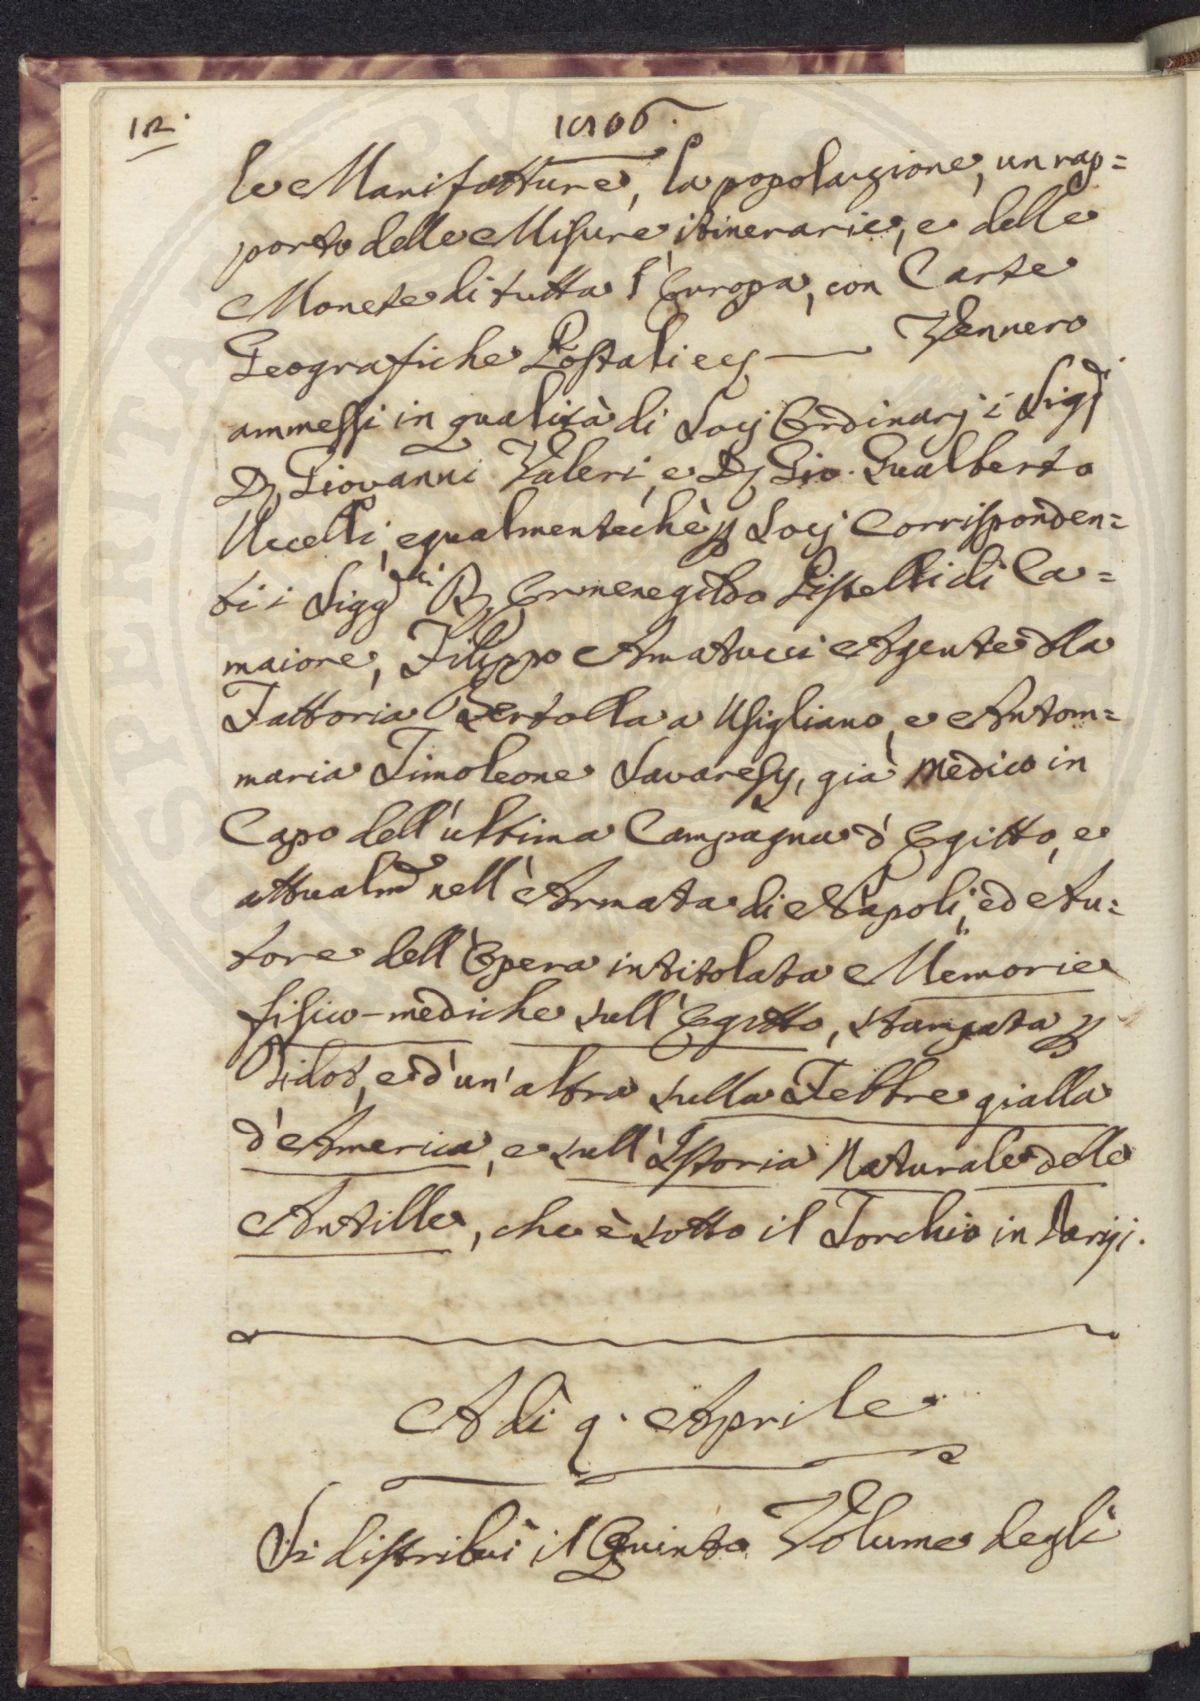 12.
1806.
le Manifatture, la popolazione, un rap=
porto delle Misure itinerarie, e delle
Monete di tutta l'Europa, con Carte
Geografiche Postali ec. — Vennero
ammessi in qualità di Socj Ordinarj i Sigri
D. Giovanni Valeri, e D. Gio. Gualberto
Uccelli, egualmentechè p Socj Corrisponden=
ti i Siggri D. Ermenegildo Pistelli di Ca=
maiore, Filippo Amatucci Agente dlla
Fattoria Bertolla a Usigliano, e Antom=
maria Timoleone Savaresy, già Medico in
Capo dell'ultima Campagna d'Egitto, e
attualmte nell'Armata di Napoli, ed Au=
tore dell'Opera intitolata Memorie
fisico-mediche sull'Egitto, stampata p
Didot, e d'un'altra sulla Febbre gialla
d'America, e sull'Istoria Naturale delle
Antille, che è sotto il Torchio in Parigi.
A dì 9. Aprile
Si distribuì il Quinto Volume degli